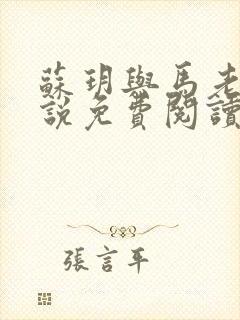 蘇玥與馬老
說免費閱讀
張言平